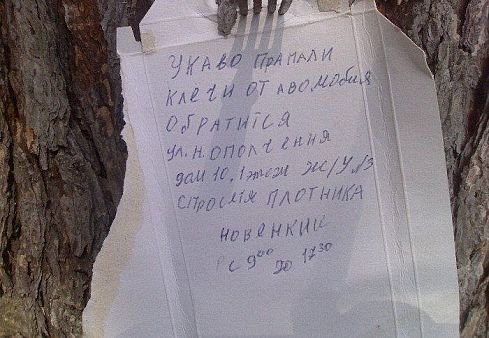 УКАВО ПРАПАЛИ
КЛЕЧИ ОТ АВОМОБИЯ
ОБРАТИТСЯ
УЛ. Н. ОПОЛЧЕНИЯ
дом 10, 1 этаж Ж/У №3
СПРОСИТЯ ПЛОТНИКА
НОВЕНКИЕ
С 9⁰⁰ до 17³⁰